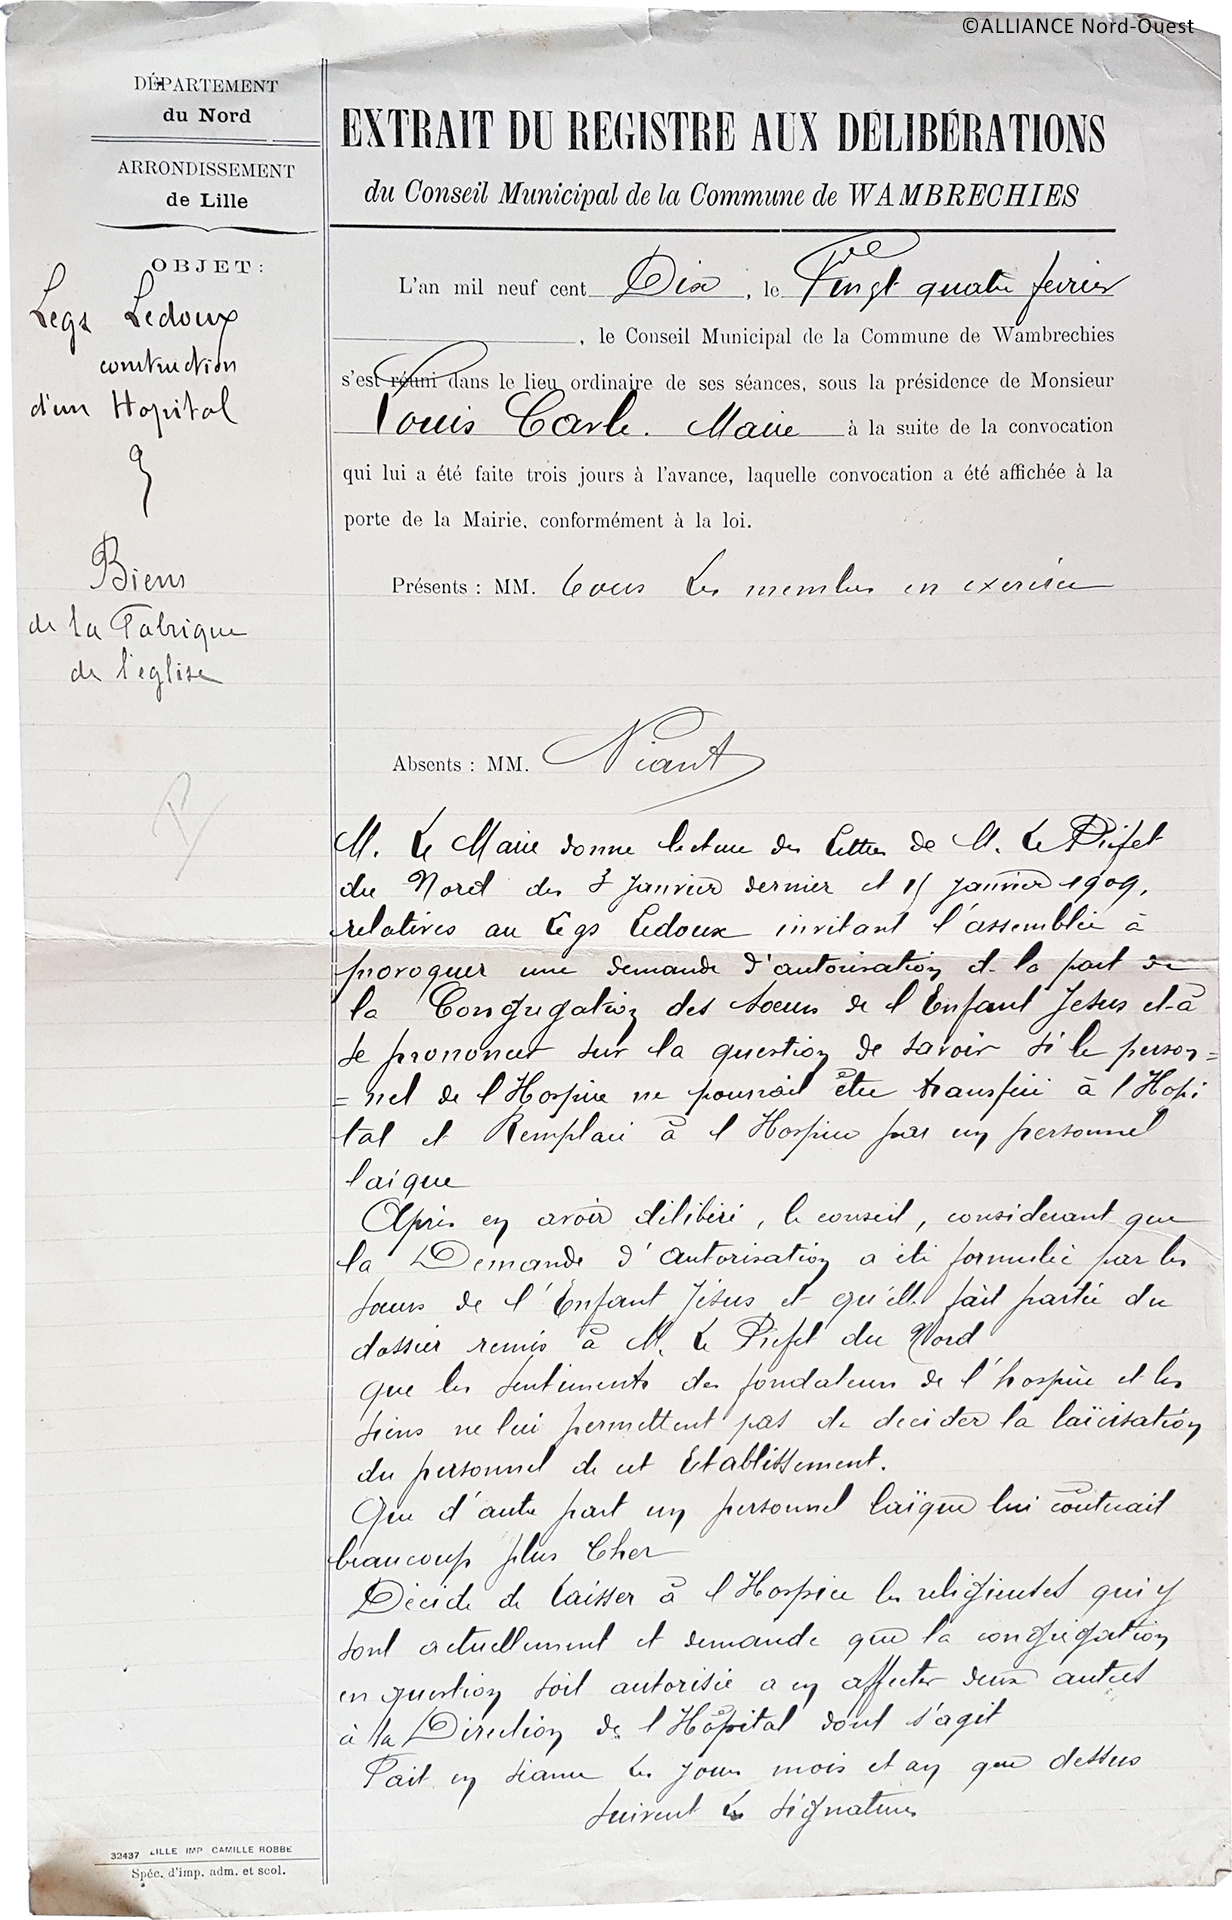 ©ALLIANCE Nord-Ouest
DÉPARTEMENT
du Nord
ARRONDISSEMENT
de Lille
OBJET:
Legs Ledoux
construction
d'un Hopital
Biens
de la Fabrique
de l'église
EXTRAIT DU REGISTRE AUX DÉLIBÉRATIONS
du Conseil Municipal de la Commune de WAMBRECHIES
L'an mil neuf cent Dix, le Vingt quatre fevrier
, le Conseil Municipal de la Commune de Wambrechies
s'est réuni dans le lieu ordinaire de ses séances, sous la présidence de Monsieur
Louis Carle. Maire à la suite de la convocation
qui lui a été faite trois jours à l'avance, laquelle convocation a été affichée à la
porte de la Mairie, conformément à la loi.
Présents : MM. tous les membres en exercice
Absents : MM. Néant
M. Le Maire donne lecture des lettres de M. Le Préfet
du Nord des 3 Janvier dernier et 15 janvier 1909,
relatives au Legs Ledoux invitant l'assemblée à
provoquer une demande d'autorisation de la part de
la Congrégation des Soeurs de l'Enfant Jésus et à
se prononcer sur la question de savoir si le person=
=nel de l'Hospice ne pourrait être transféré à l'Hopi
tal et Remplacé à l'Hospice par un personnel
laique
Après en avoir délibéré, le conseil, considerant que
la Demande d'autorisation a été formulée par les
soeurs de l'Enfant Jésus et qu'elle fait partie du
dossier remis à M. Le Préfet du Nord
que les sentiments des fondateurs de l'hospice et les
siens ne lui permettent pas de decider la laïcisation
du personnel de cet Etablissement.
Que d'autre part un personnel laïque lui couterait
beaucoup plus Cher
Décide de laisser à l'Hospice les religieuses qui y
sont actuellement et demande que la congrégation
en question soit autorisée a en affecter deux autres
à la Direction de l'Hôpital dont s'agit
Fait en séance les jour mois et an que dessus
suivent les signatures
32437 LILLE IMP CAMILLE ROBBE
Spéc. d'imp. adm. et scol.